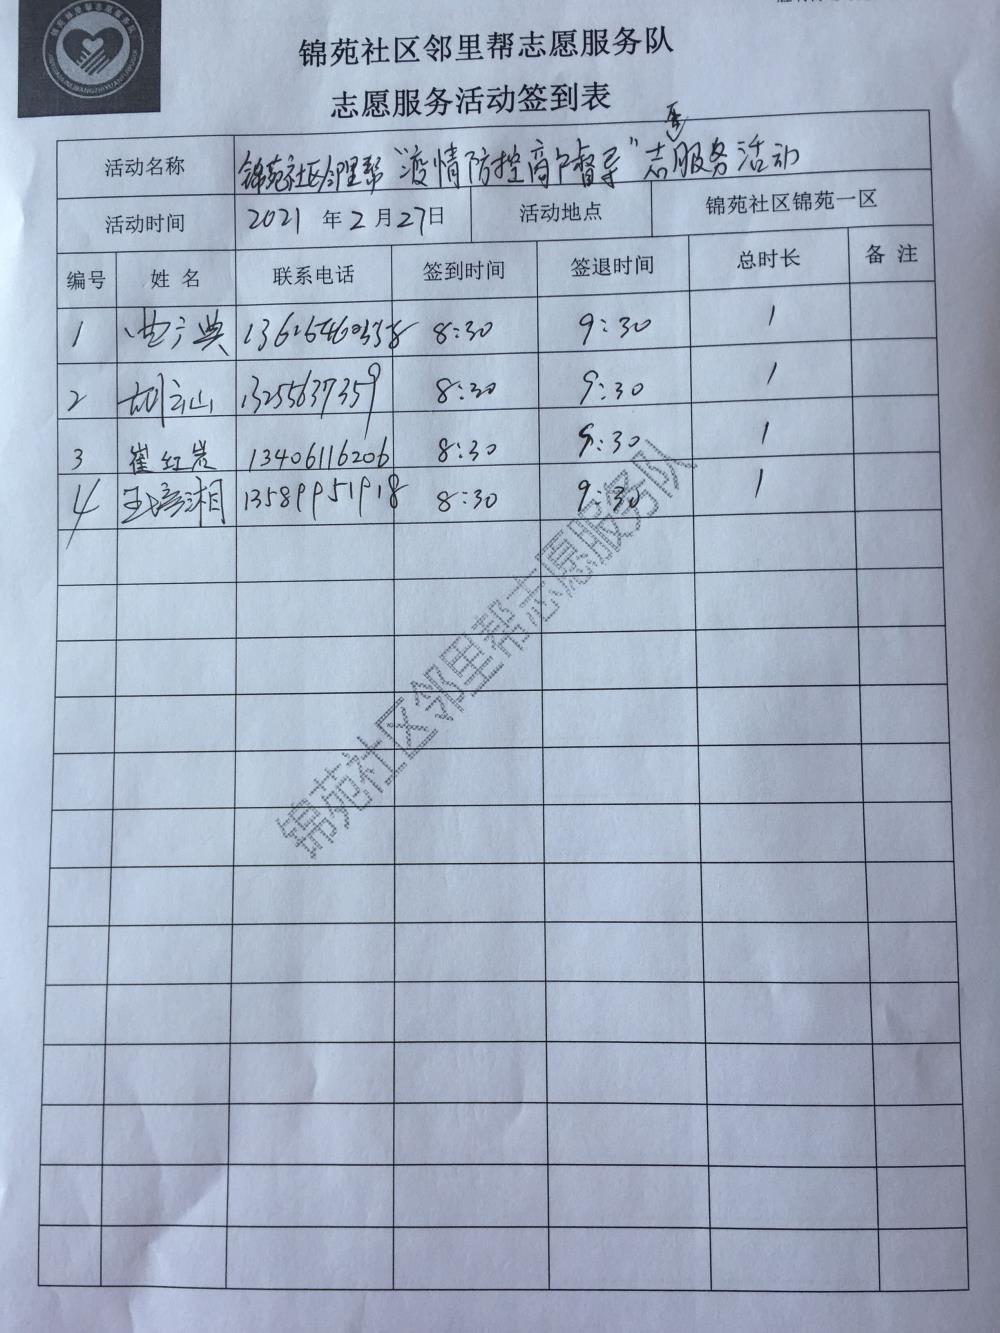 锦苑社区邻里帮志愿服务队
志愿服务活动签到表
活动名称 锦苑社区邻里帮“疫情防控商户督导”志愿服务活动
活动时间 2021 年 2 月 27 日 活动地点 锦苑社区锦苑一区
编号 姓 名 联系电话 签到时间 签退时间 总时长 备 注
1 8:30 9:30 1
2 胡立山 13255637359 8:30 9:30 1
3 崔红岩 13406116206 8:30 9:30 1
4 13589951918 8:30 9:30 1
锦苑社区邻里帮志愿服务队